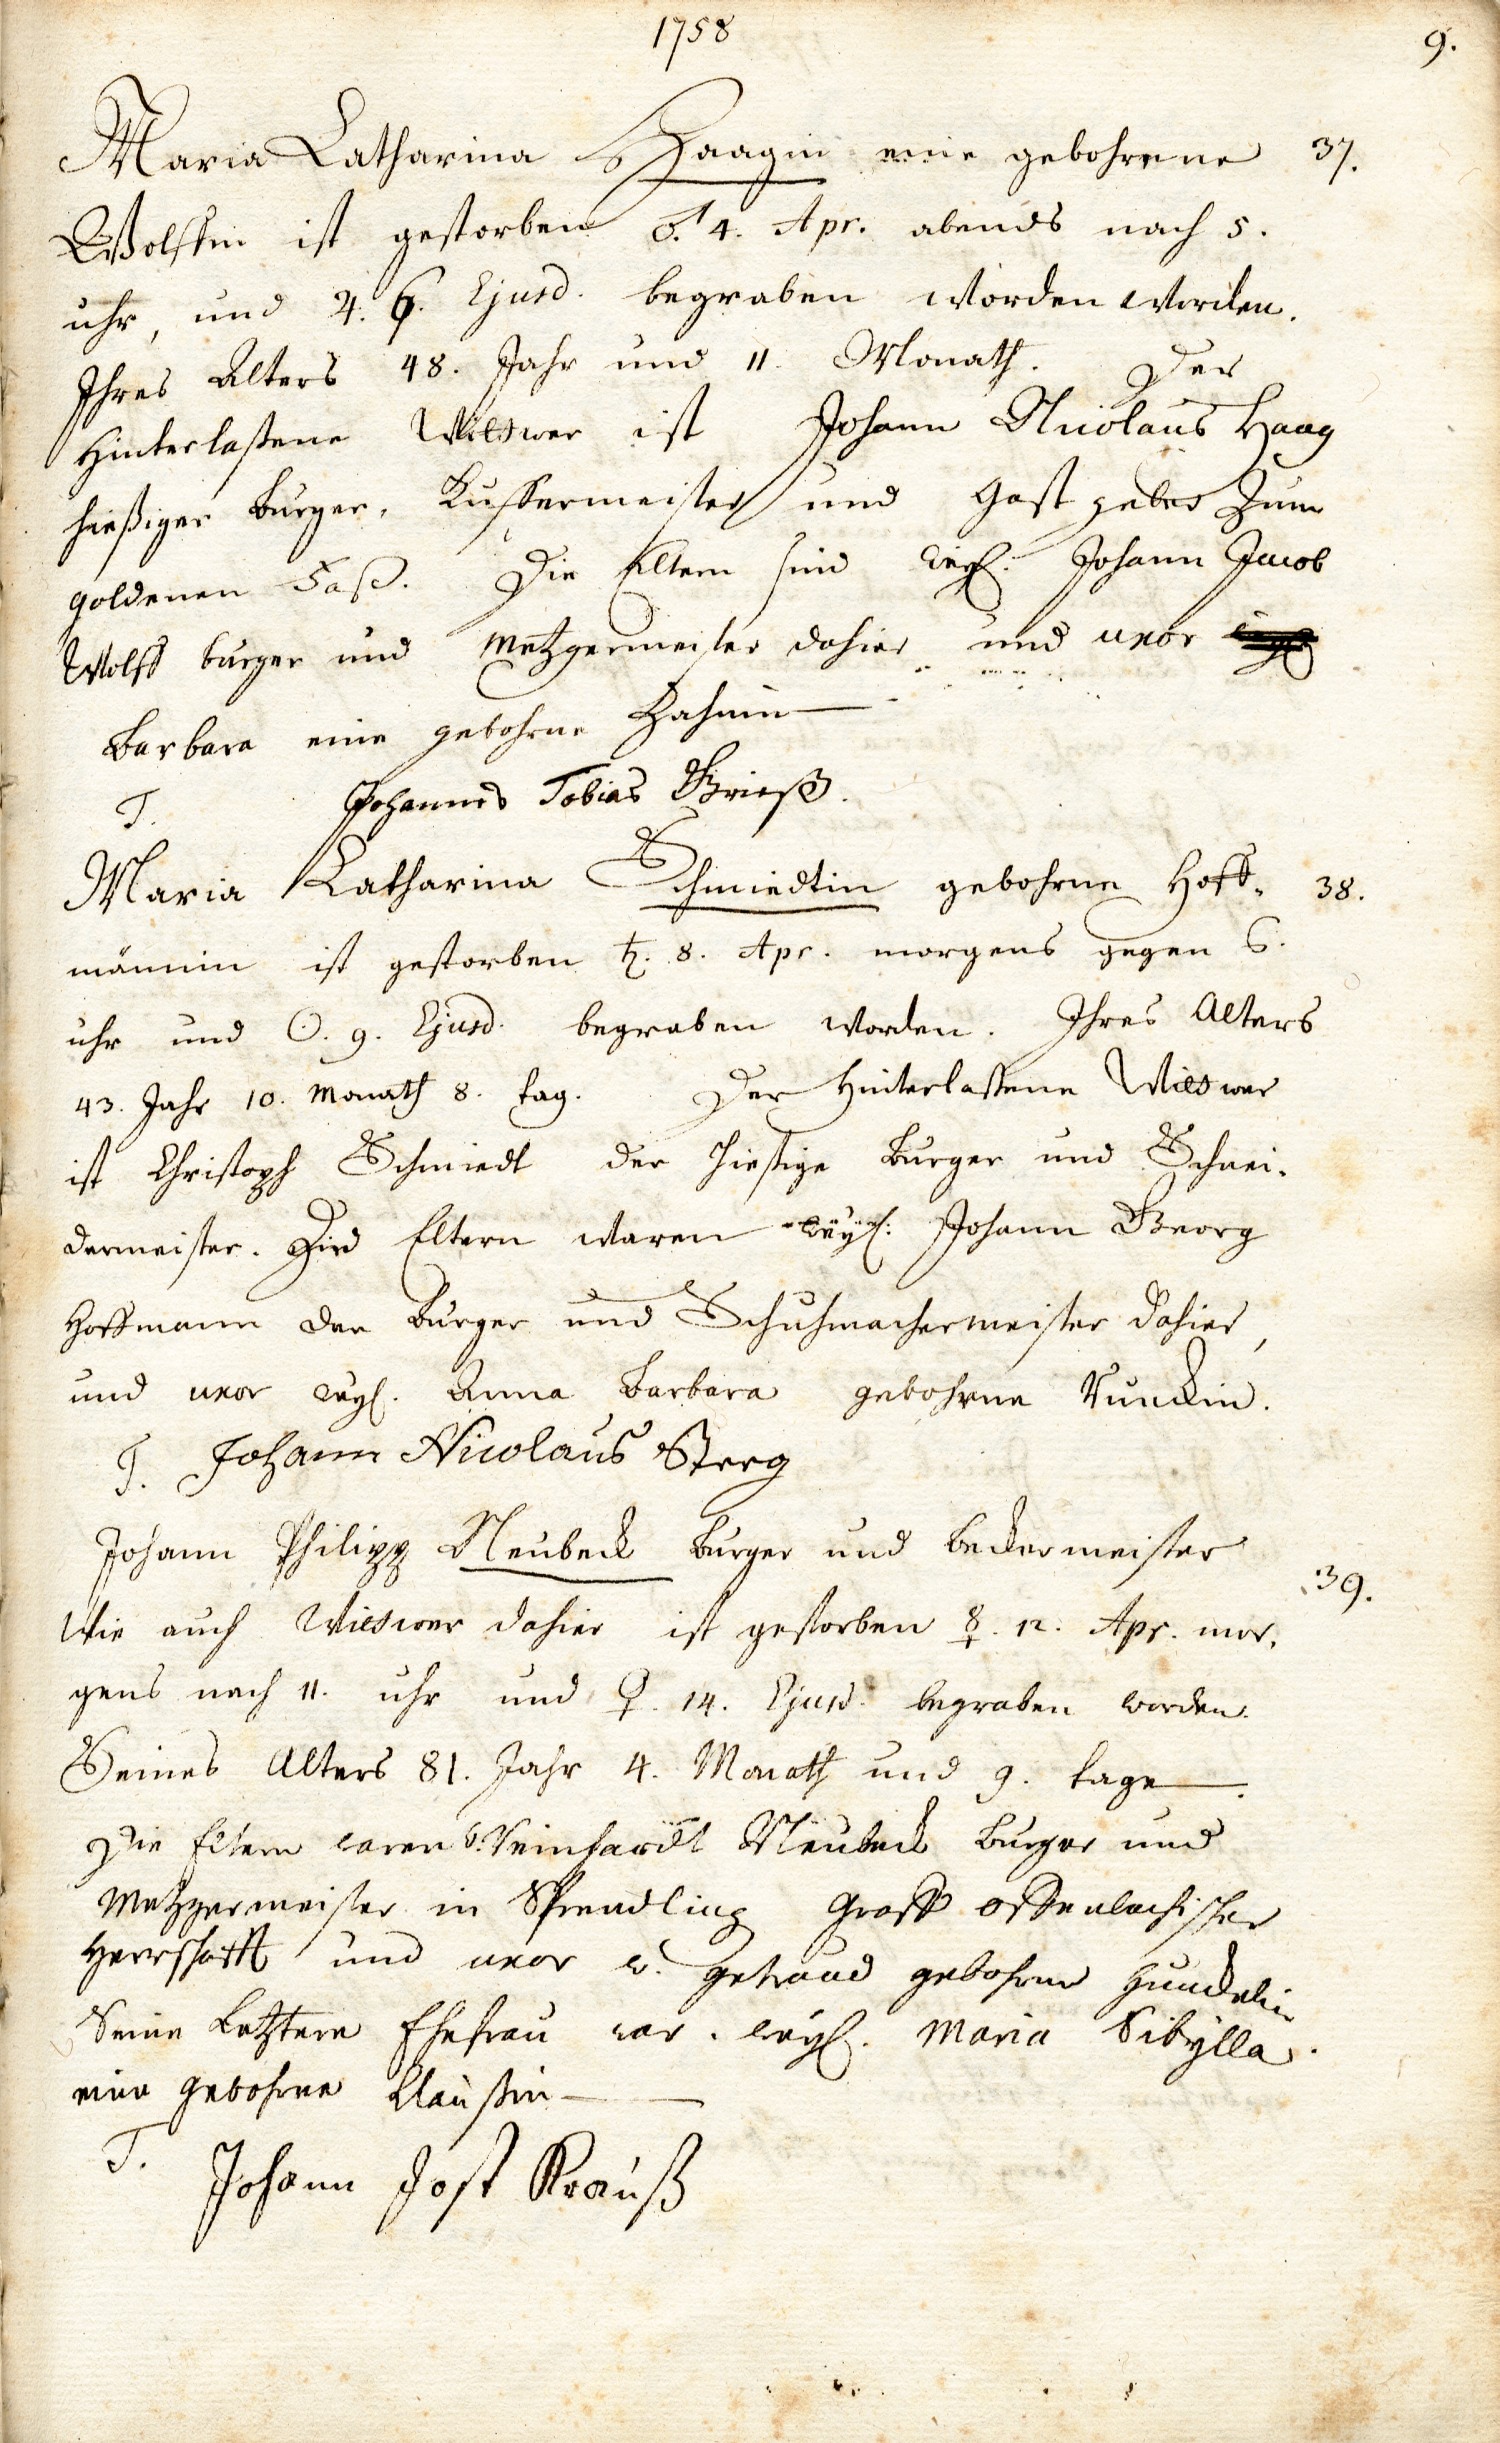 1758
9.
Maria Catharina Haagin eine gebohrene 37.
Wolffin ist gestorben ♂. 4. Apr. abends nach 5.
uhr, und ♃. 6. Ejusd. begraben worden worden.
Ihres Alters 48. Jahr und 11. Monath. Der
Hinterlaßene Wittwer ist Johann Nicolaus Haag
hießiger Burger, Kuffermeister und Gast geber Zum
goldenen Faß. Die Eltern sind weyl. Johann Jacob
Wolff burger und Metzgermeister dahier und uxor
Barbara eine gebohrne Hahnin
T. Johannes Tobias Grieß.
Maria Catharina Schmiedtin gebohrne Hoff- 38.
männin ist gestorben ♄. 8. Apr. morgens gegen 6.
uhr und ☉. 9. Ejusd. begraben worden. Ihres Alters
43. Jahr 10. Monath 8. tag. Der Hinterlaßene Wittwer
ist Christoph Schmiedt der hießige Burger und Schnei-
dermeister. Die Eltern waren weyl. Johann Georg
Hoffmann der Burger und Schuhmachermeister dahier,
und uxor weyl. Anna Barbara gebohrne Runckin.
T. Johann Nicolaus Sterg
Johann Philipp Neubeck Burger und beckermeister
Wie auch Wittwer dahier ist gestorben ☿. 12. Apr. mor- 39.
gens nach 11. uhr und ♀. 14. Ejusd. begraben worden.
Seines Alters 81. Jahr 4. Monath und 9. tage.
Die Eltern waren Reinhardt Neubeck Burger und
Metzgermeister in Sprendling Graff offenbachischer
Herrschafft und uxor w. Getraud gebohrne Hunckelin
Seine Letztere Ehefrau war weyl. Maria Sibylla.
eine gebohrne Claußin
T. Johann Jost Krauß